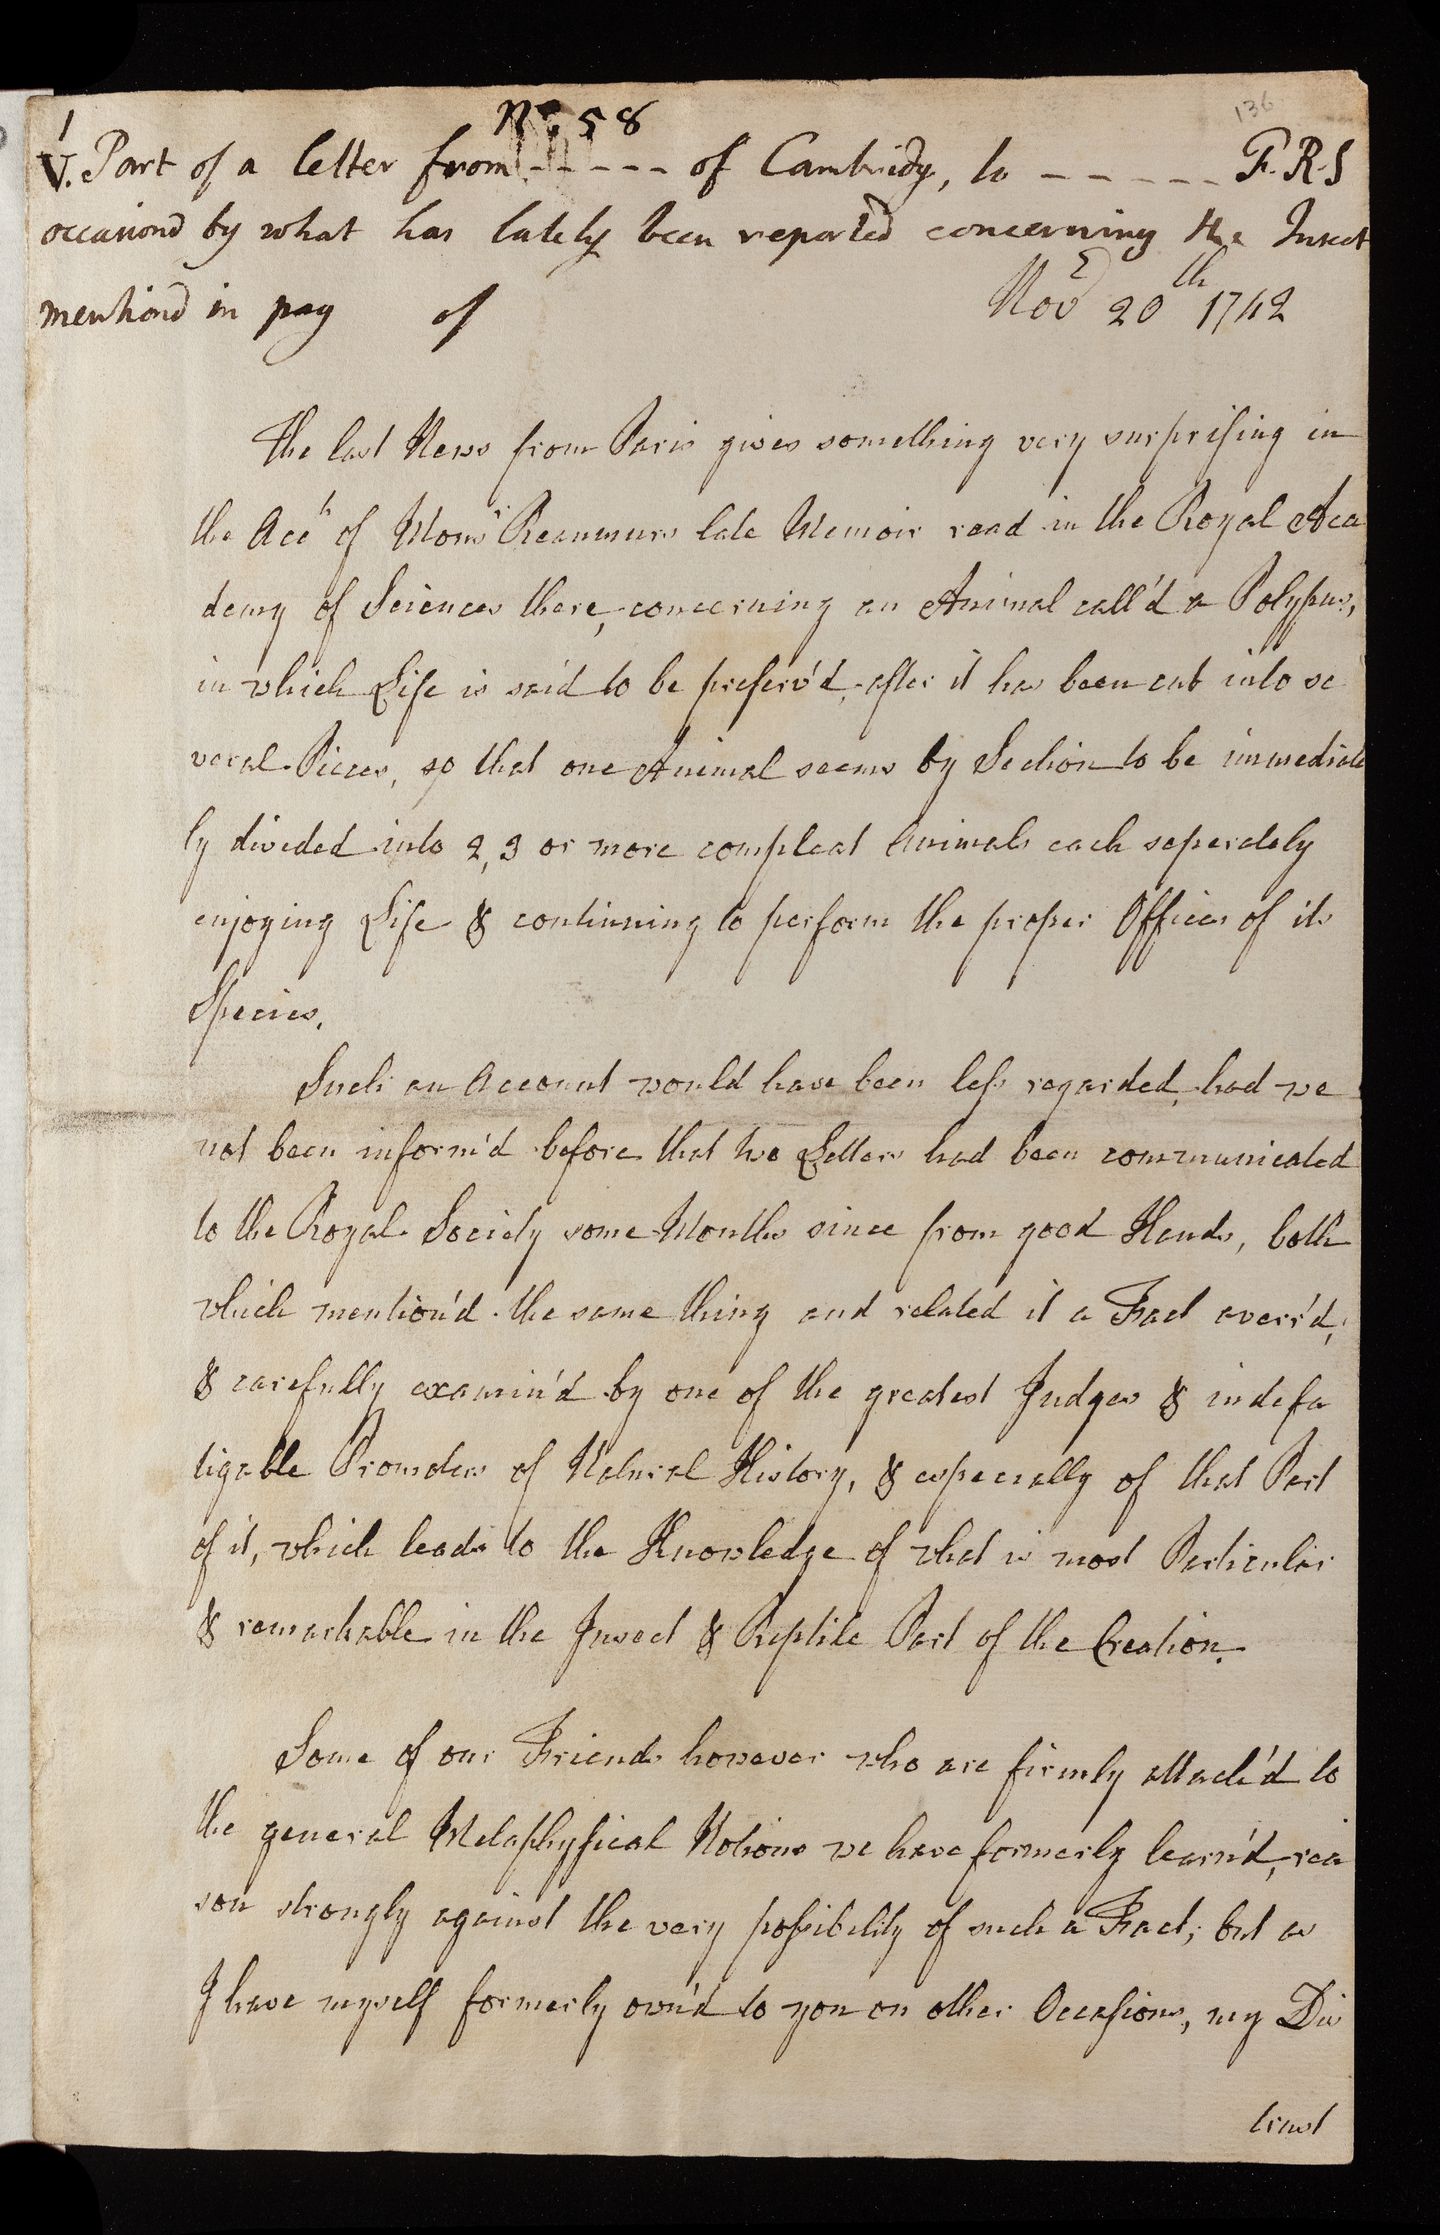 No. 58
136
1
V. Part of a letter from ----- of Cambridg, to ------ F.R.S
occasiond by what has lately been reported concerning the Insect
mentiond in pag of
Novr 20th 1742
The last News from Paris gives something very surprising in
the Acct of Monsr Reaumurs late Memoir read in the Royal Aca
demy of Sciences there, concerning an Animal call'd a Polypus,
in which Life is said to be preserv'd, after it has been cut into se
veral Pieces, so that one Animal seems by Section to be immediate
ly divided into 2, 3 or more compleat Animals each seperately
enjoying Life & continuing to perform the proper Offices of its
Species.
Such an Account would have been less regarded, had we
not been inform'd before that two Letters had been communicated
to the Royal Society some Months since from good Hands, both
which mention'd the same thing and related it a Fact averr'd,
& carefully examin'd by one of the greatest Judges & indefa
tigable Promoters of Natural History, & especially of that Part
of it, which leads to the Knowledge of what is most Particular
& remarkable in the Insect & Reptile Part of the Creation.
Some of our Friends however who are firmly attach'd to
the general Metaphysical Notions we have formerly learn'd, rea
son strongly against the very possibility of such a Fact; but as
I have myself formerly own'd to you on other Occasions, my Dis
trust